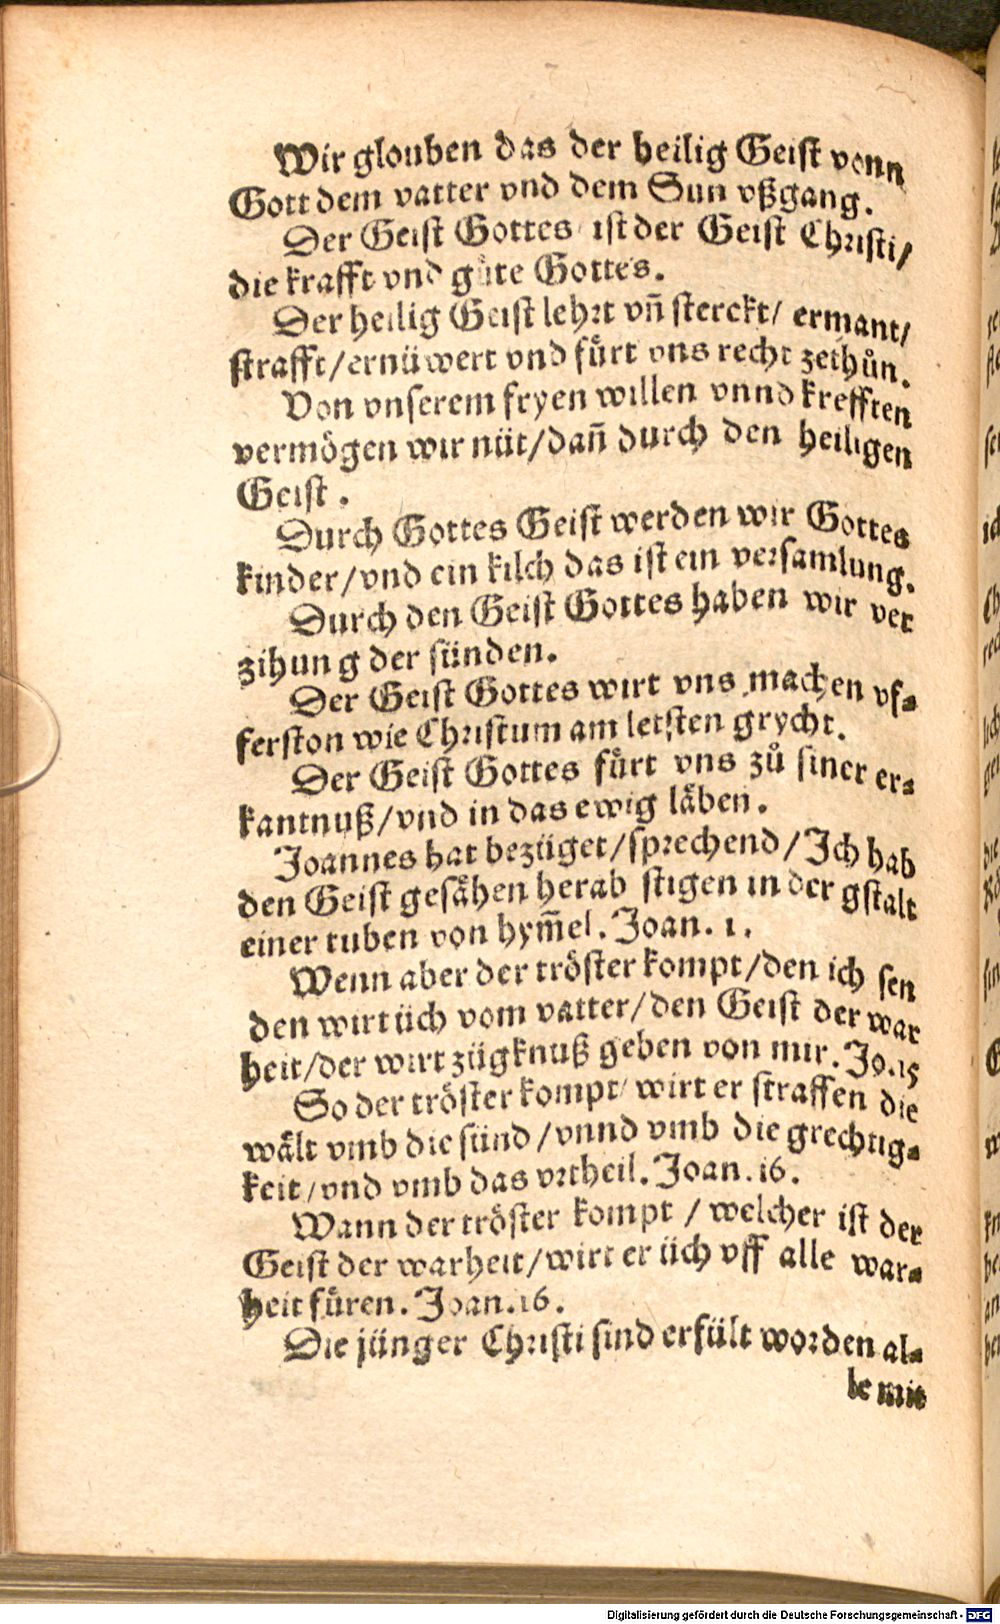 Wir glouben das der heilig Geist vonn
Gott dem vatter vnd dem Sun vßgang.
Der Geist Gottes ist der Geist Christi/
die krafft vnd güte Gottes.
Der heilig Geist lehrt vñ sterckt/ ermant/
strafft/ernüwert vnd fuͤrt vns recht zethuͦn.
Von vnserem fryen willen vnnd krefften
vermögen wir nüt/dañ durch den heiligen
Geist.
Durch Gottes Geist werden wir Gottes
kinder/vnd ein kilch das ist ein versamlung.
Durch den Geist Gottes haben wir ver
zihung der sünden.
Der Geist Gottes wirt vns machen vf⸗
ferston wie Christum am letsten grycht.
Der Geist Gottes fuͤrt vns zuͦ siner er⸗
kantnuß/vnd in das ewig laͤben.
Joannes hat bezüget/sprechend/Ich hab
den Geist gesaͤhen herab stigen in der gstalt
einer tuben von hym̃el. Joan. 1.
Wenn aber der tröster kompt/den ich sen
den wirt üch vom vatter/den Geist der war
heit/der wirt zügknuß geben von mir. Jo.15
So der tröster kompt/ wirt er straffen die
waͤlt vmb die sünd/vnnd vmb die grechtig⸗
keit/vnd vmb das vrtheil. Joan.16.
Wann der tröster kompt / welcher ist der
Geist der warheit/wirt er üch vff alle war⸗
heit fuͤren. Joan.16.
Die jünger Christi sind erfült worden al⸗
le mit
Digitalisierung gefördert durch die Deutsche Forschungsgemeinschaft - DFG